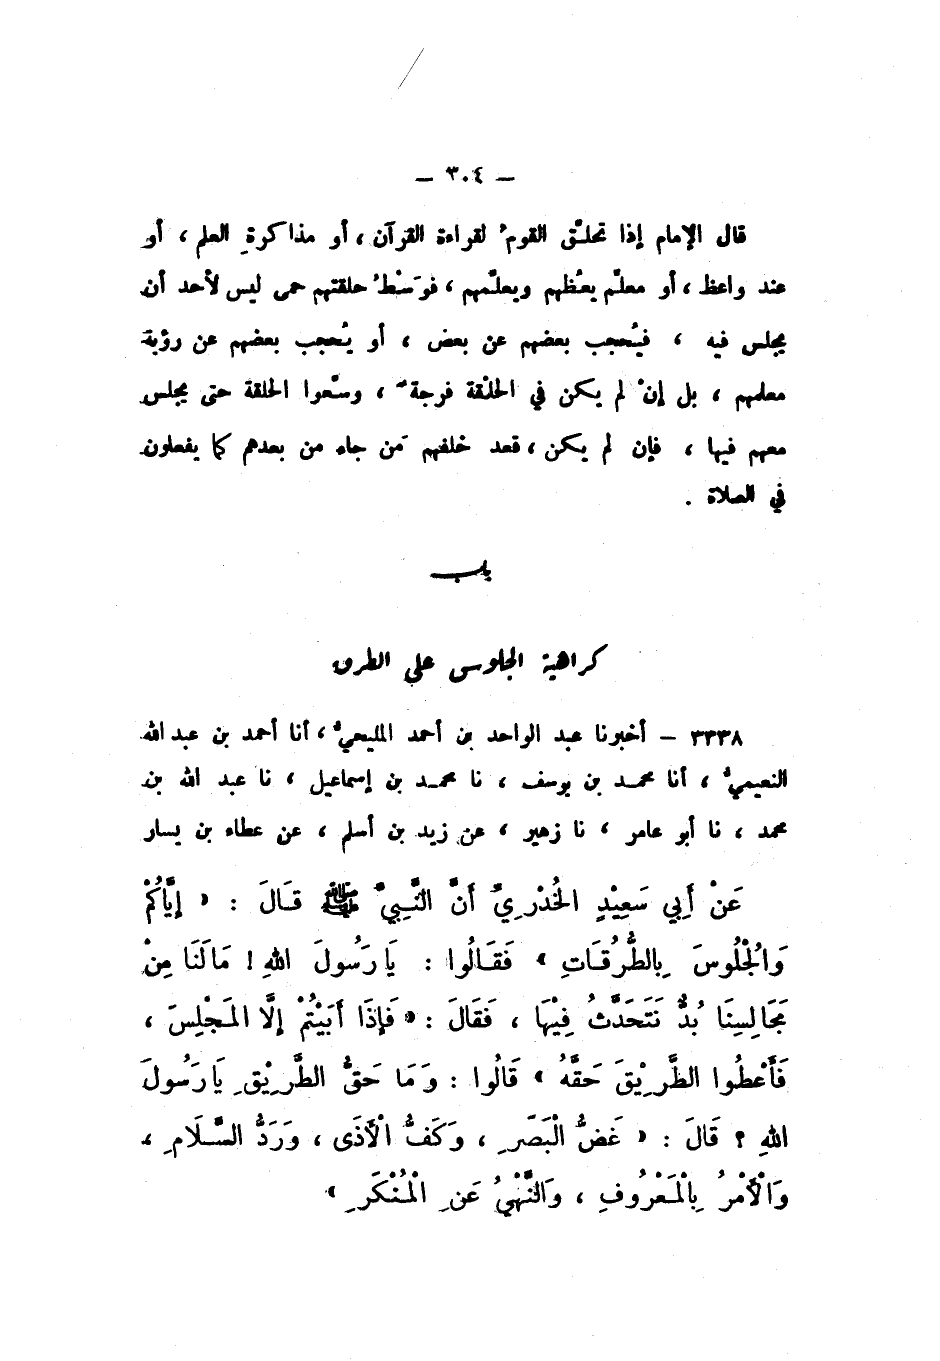 — ٣٠٤ —
قال الإمام إذا تحلـّق القومُ لقراءة القرآن ، أو مذاكرةِ العلم ، أو
عند واعظ ، أو معلّم يعُظهم ويعلّمهم ، فوَسْطُ حلقتهم حمى ليس لأحد أن
يجلس فيه ، فيُحجب بعضهم عن بعض ، أو يُحجب بعضهم عن رؤية
معلمهم ، بل إنْ لم يكن في الحلْقة فرجةٌ ، وسّعوا الحلقة حتى يجلس
معهم فيها ، فإن لم يكن ، قعد خلفهم مَن جاء من بعدهم كما يفعلون
في الصلاة .
باب
كراهية الجلوس على الطرق
٣٣٣٨ — أخبرنا عبد الواحد بن أحمد المليحيُّ ، أنا أحمد بن عبد الله
النعيميُّ ، أنا محمـد بن يوسف ، نا محمـد بن إسماعيل ، نا عبد الله بن
محمد ، نا أبو عامر ، نا زهير ، عن زيد بن أسلم ، عن عطاء بن يسار
عَنْ أَبِي سَعِيْدٍ الخُدْرِيِّ أَنَّ النَّبِيَّ ﷺ قَالَ : « إِيَّاكُمْ
وَالْجُلُوسَ بِالطُّرُقَاتِ » فَقَالُوا : يَا رَسُولَ اللهِ ! مَا لَنَا مِنْ
مَجَالِسِنَا بُدٌّ نَتَحَدَّثُ فِيْهَا ، فَقَالَ : « فَإِذَا أَبَيْتُمْ إِلَّا المَجْلِسَ ،
فَأَعْطُوا الطَّرِيْقَ حَقَّهُ » قَالُوا : وَمَا حَقُّ الطَّرِيْقِ يَا رَسُولَ
اللهِ ؟ قَالَ : « غَضُّ الْبَصَرِ ، وَكَفُّ الْأَذَى ، وَرَدُّ السَّلَامِ ،
وَالْأَمْرُ بِالْمَعْرُوفِ ، وَالنَّهْيُ عَنِ الْمُنْكَرِ »